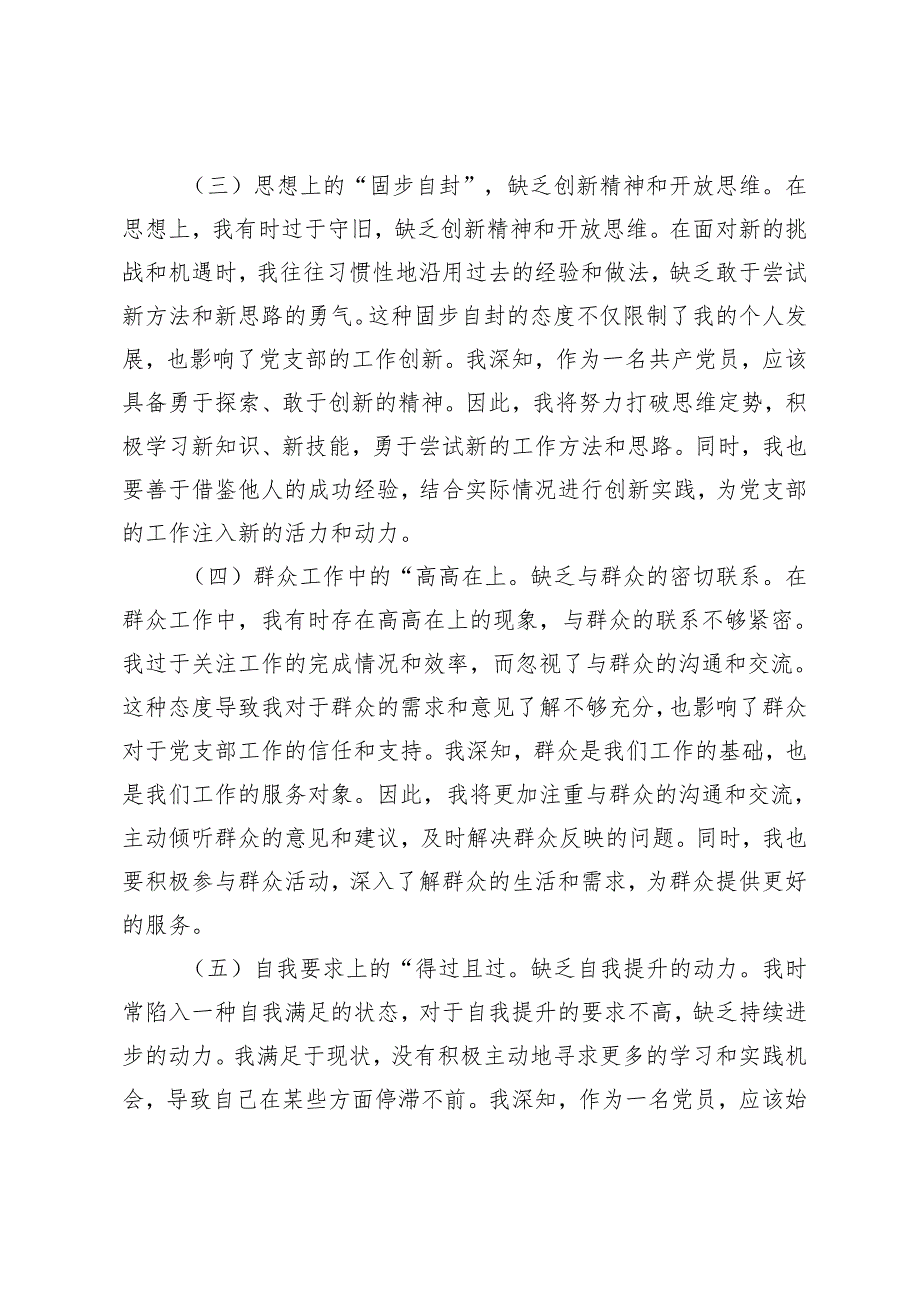 （三）思想上的“固步自封”，缺乏创新精神和开放思维。在
思想上，我有时过于守旧，缺乏创新精神和开放思维。在面对新的挑
战和机遇时，我往往习惯性地沿用过去的经验和做法，缺乏敢于尝试
新方法和新思路的勇气。这种固步自封的态度不仅限制了我的个人发
展，也影响了党支部的工作创新。我深知，作为一名共产党员，应该
具备勇于探索、敢于创新的精神。因此，我将努力打破思维定势，积
极学习新知识、新技能，勇于尝试新的工作方法和思路。同时，我也
要善于借鉴他人的成功经验，结合实际情况进行创新实践，为党支部
的工作注入新的活力和动力。
（四）群众工作中的“高高在上。缺乏与群众的密切联系。在
群众工作中，我有时存在高高在上的现象，与群众的联系不够紧密。
我过于关注工作的完成情况和效率，而忽视了与群众的沟通和交流。
这种态度导致我对于群众的需求和意见了解不够充分，也影响了群众
对于党支部工作的信任和支持。我深知，群众是我们工作的基础，也
是我们工作的服务对象。因此，我将更加注重与群众的沟通和交流，
主动倾听群众的意见和建议，及时解决群众反映的问题。同时，我也
要积极参与群众活动，深入了解群众的生活和需求，为群众提供更好
的服务。
（五）自我要求上的“得过且过。缺乏自我提升的动力。我时
常陷入一种自我满足的状态，对于自我提升的要求不高，缺乏持续进
步的动力。我满足于现状，没有积极主动地寻求更多的学习和实践机
会，导致自己在某些方面停滞不前。我深知，作为一名党员，应该始